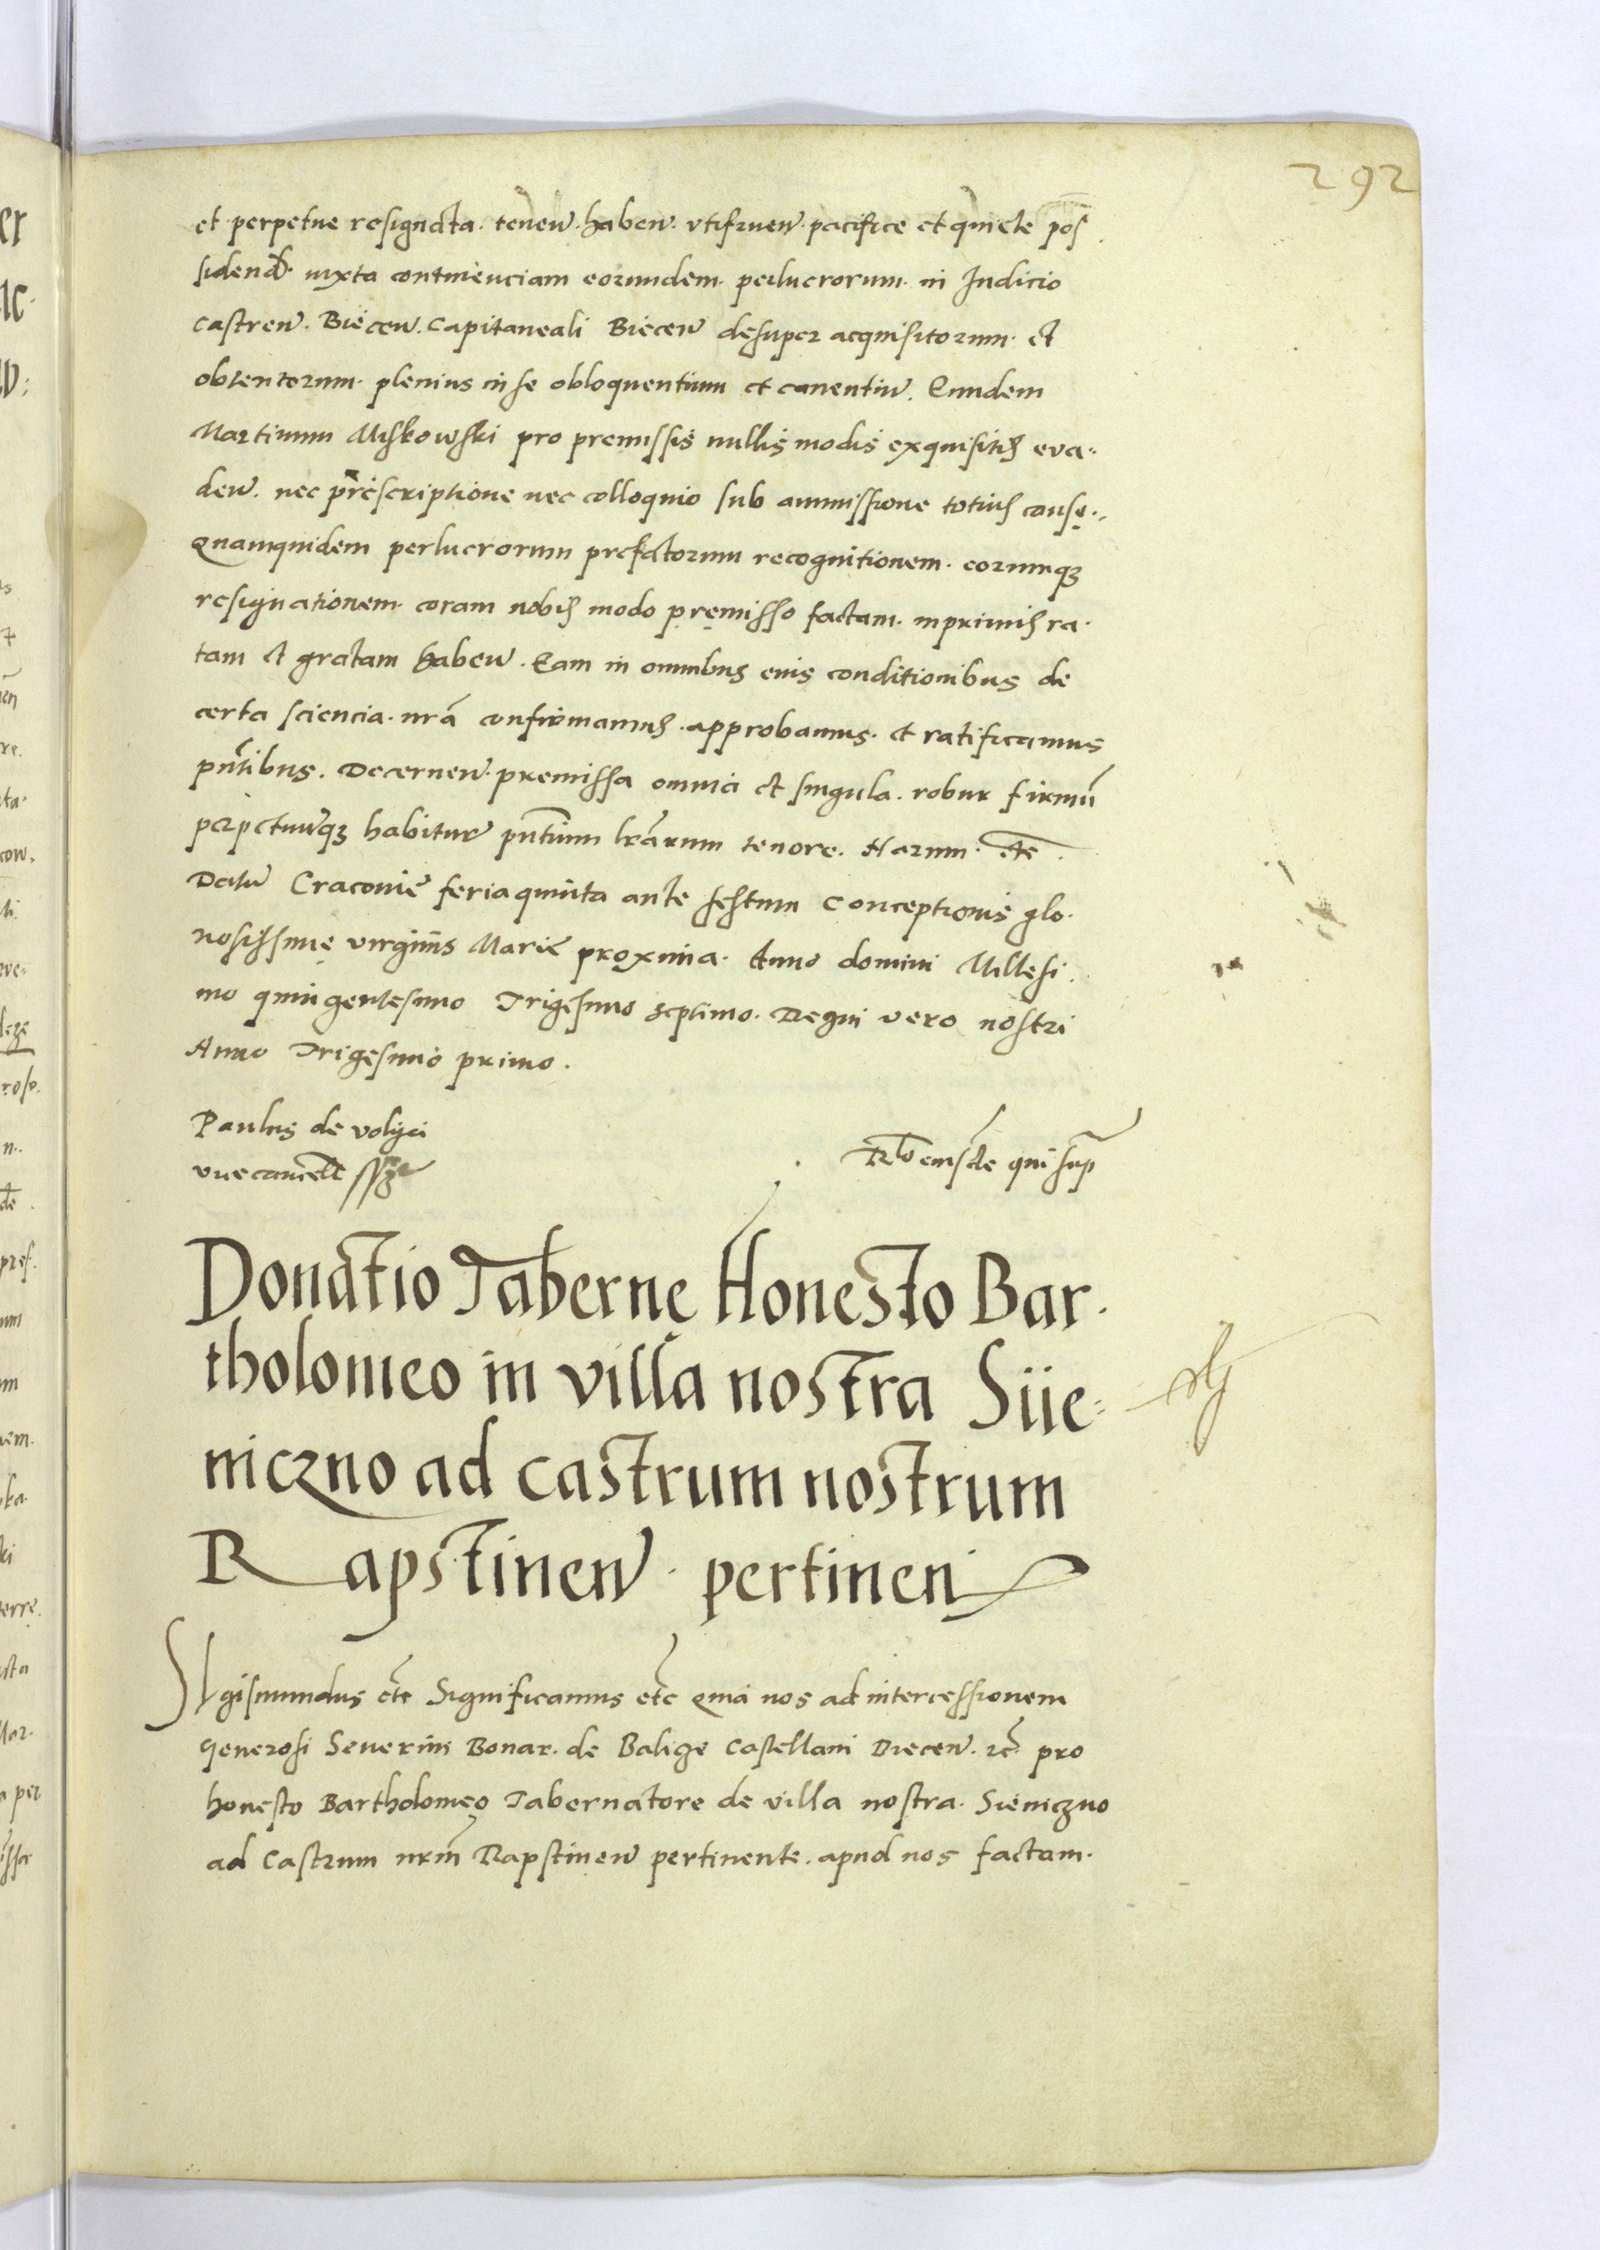 292
et perpetue resignata. tenen. haben. vtifruen. pacifice et quiete pos
sidend. iuxta continenciam eorundem. perlucrorum. in Iudicio
castren. Biecen. Capitaneali Biecen desuper acquisitorum. et
obtentorum. plenius in se obloquentium et canentiu. Eundem
Martinum Miskowski pro premissis nullis modis exquisitis eva-
den. nec prescriptione nec colloquio sub ammissione totius causę.
Quamquidem perlucrorum prefatorum recognitionem. eorumq3
resignationem. coram nobis modo pręmisso factam. inprimis ra-
tam et gratam haben. Eam in omnibus eius conditionibus de
certa sciencia. nrā confirmamus. approbamus. et ratificamus
pntibus. Decernen. premissa omnia et singula. robur firmū
perpetuuq3 habitur pntium lrarum tenore. Harum. etc.
Datu Cracovie feria quinta ante festum Conceptionis glo-
riosissimę virginis Marie proxima. Anno domini Millesi-
mo quingentesimo Trigesimo septimo. Regni vero nostri
Anno Trigesimo primo.
Paulus de volya
vicecancell sszt
Rlo eiusde qui sup
Donatio Taberne Honesto Bar-
tholomeo in villa nostra Siie-
niczno ad castrum nostrum
Rapstinen. pertinen
Sigismundus etc Significamus etc Quia nos ad intercessionem
generosi Severini Bonar. de Balicze Castellani Biecen. etc pro
honesto Bartholomeo Tabernatore de villa nostra. Sieniczno
ad Castrum nrm Rapstinen pertinente. apud nos factam.